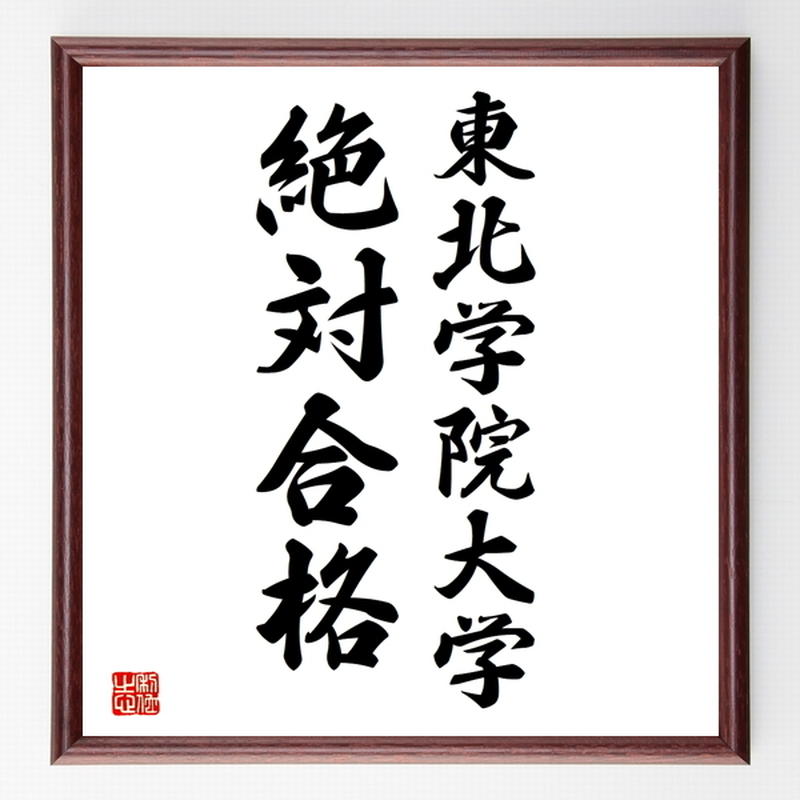 東北学院大学
絶対合格